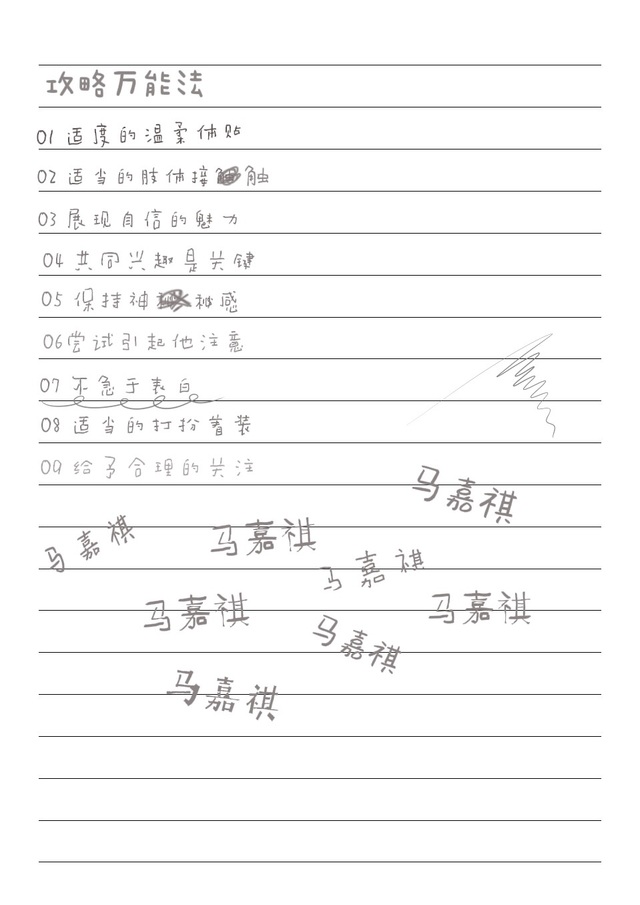 攻略万能法
01 适度的温柔体贴
02 适当的肢体接触
03 展现自信的魅力
04 共同兴趣是关键
05 保持神秘感
06 尝试引起他注意
07 不急于表白
08 适当的打扮着装
09 给予合理的关注
马嘉祺
马嘉祺
马嘉祺
马嘉祺
马嘉祺
马嘉祺
马嘉祺
马嘉祺